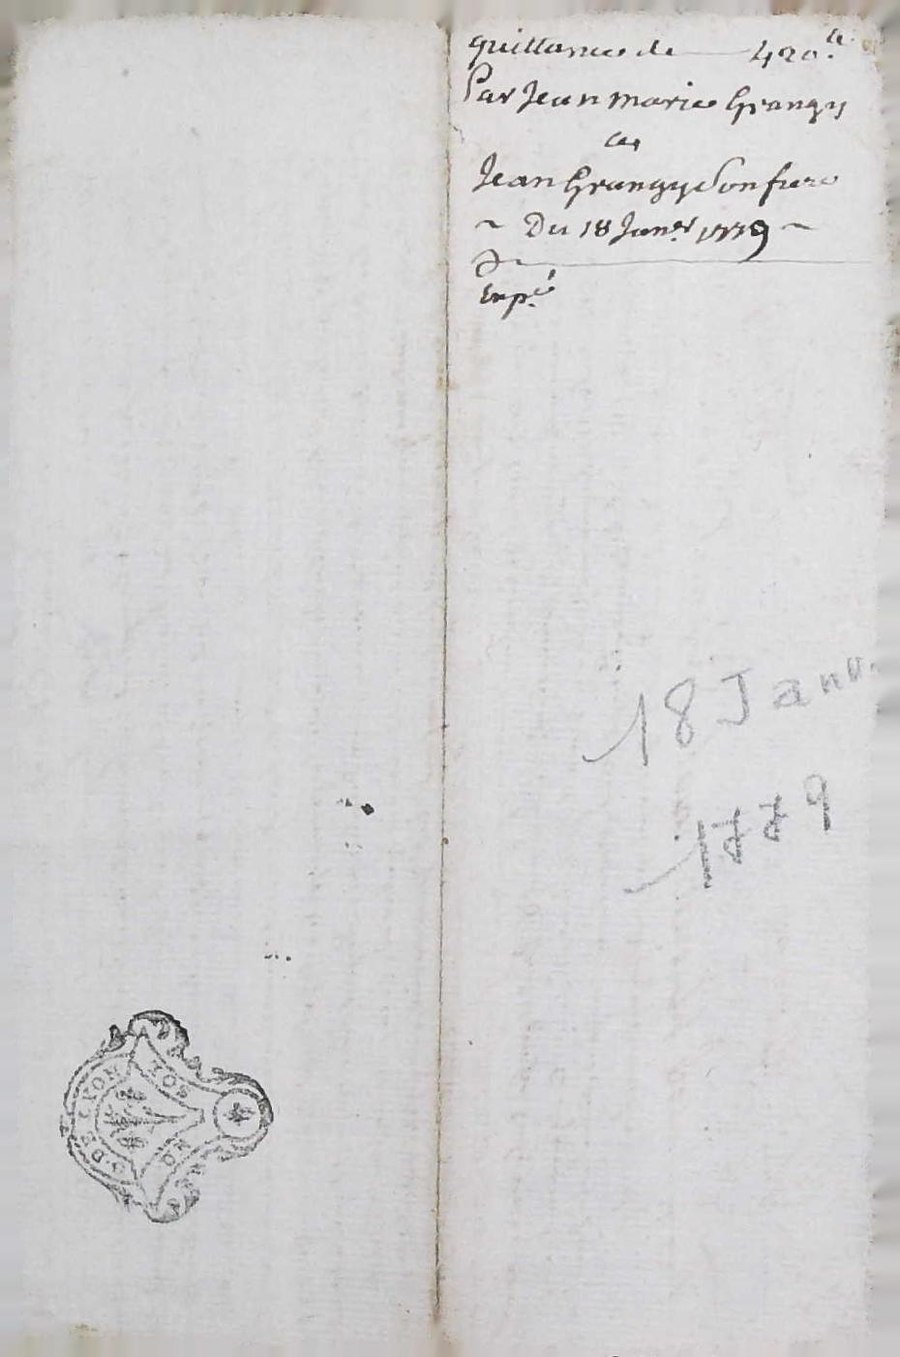 quittance de 420.ᵗᵗ
Par Jean marie Grangy
a
Jean Grangy Son frere
~ Du 18 Janᵉʳ 1779 ~
Expᵉ́
18 Janv.
1779
G. DE LYON
SOS
DE